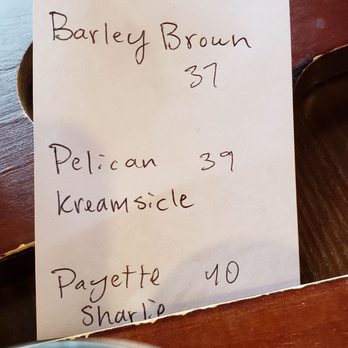 Barley Brown
37
Pelican 39
Kreamsicle
Payette 40
Sharlie